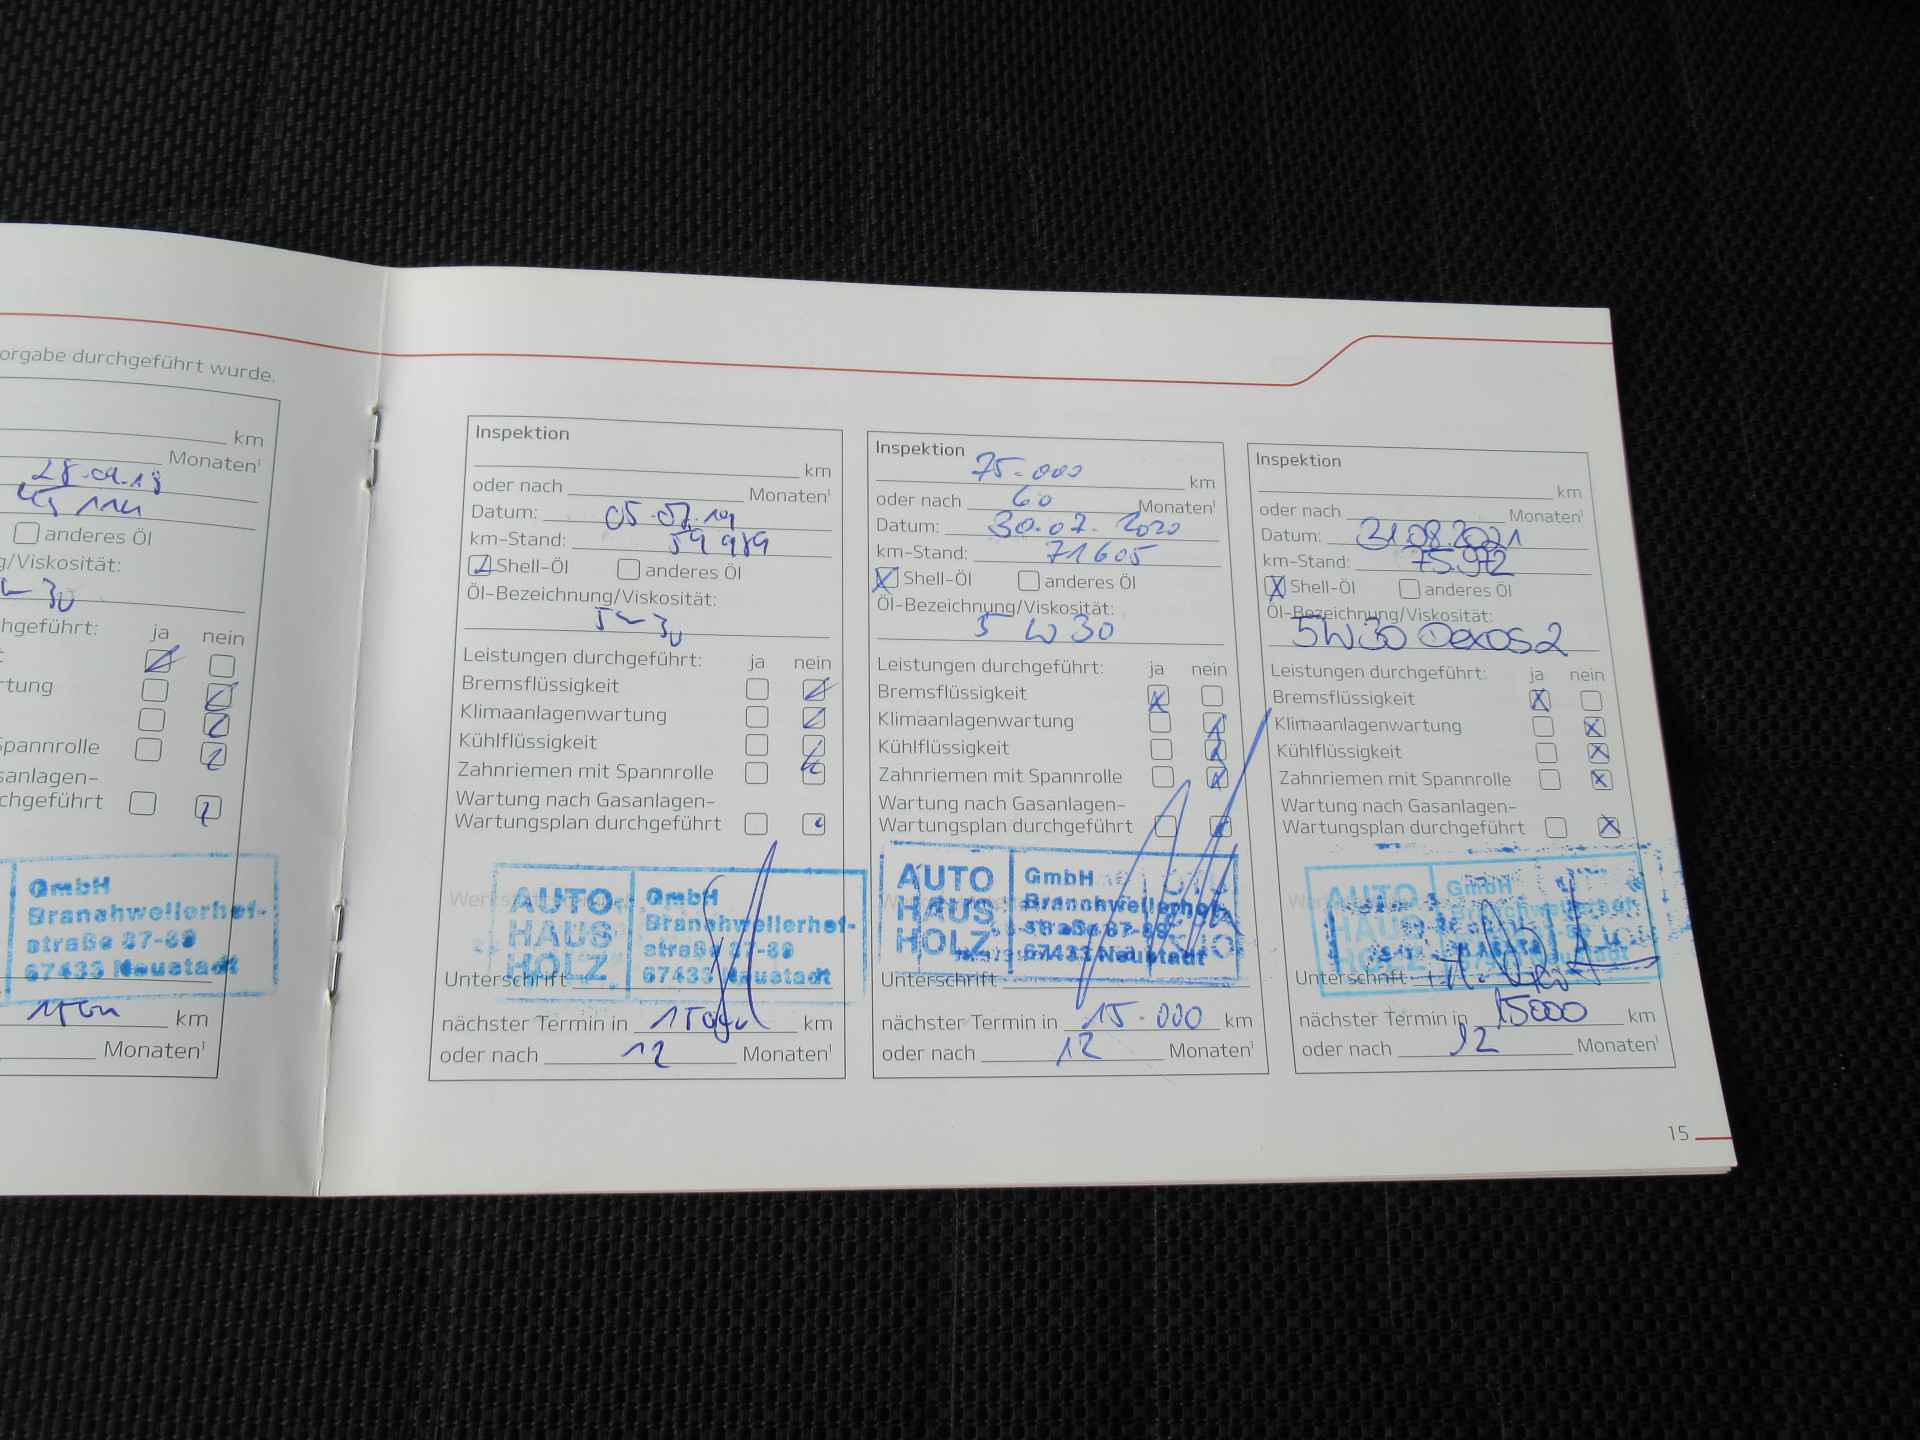 orgabe durchgeführt wurde.
km
Monaten¹
28.09.18
45 114
anderes Öl
g/Viskosität:
30
hgeführt: ja nein
rtung
Spannrolle
sanlagen-
chgeführt
GmbH
Branchweilerhof-
straße 87-89
67433 Neustadt
km
Monaten¹
Inspektion
km
oder nach Monaten¹
Datum: 05.07.19
km-Stand: 59 989
Shell-Öl anderes Öl
Öl-Bezeichnung/Viskosität:
5W30
Leistungen durchgeführt: ja nein
Bremsflüssigkeit
Klimaanlagenwartung
Kühlflüssigkeit
Zahnriemen mit Spannrolle
Wartung nach Gasanlagen-
Wartungsplan durchgeführt
AUTO HAUS HOLZ
GmbH
Branchweilerhof-
straße 87-89
67433 Neustadt
Unterschrift
nächster Termin in 15000 km
oder nach 12 Monaten¹
Inspektion
75.000 km
oder nach 60 Monaten¹
Datum: 30.07.2020
km-Stand: 71605
Shell-Öl anderes Öl
Öl-Bezeichnung/Viskosität:
5 W 30
Leistungen durchgeführt: ja nein
Bremsflüssigkeit
Klimaanlagenwartung
Kühlflüssigkeit
Zahnriemen mit Spannrolle
Wartung nach Gasanlagen-
Wartungsplan durchgeführt
AUTO HAUS HOLZ
GmbH
Branchweilerhof-
straße 87-89
67433 Neustadt
Unterschrift
nächster Termin in 15.000 km
oder nach 12 Monaten¹
Inspektion
km
oder nach Monaten¹
Datum: 31.08.2021
km-Stand: 75.972
Shell-Öl anderes Öl
Öl-Bezeichnung/Viskosität:
5W30 Dexos2
Leistungen durchgeführt: ja nein
Bremsflüssigkeit
Klimaanlagenwartung
Kühlflüssigkeit
Zahnriemen mit Spannrolle
Wartung nach Gasanlagen-
Wartungsplan durchgeführt
AUTO HAUS HOLZ
GmbH
Unterschrift
nächster Termin in 15000 km
oder nach 12 Monaten¹
15